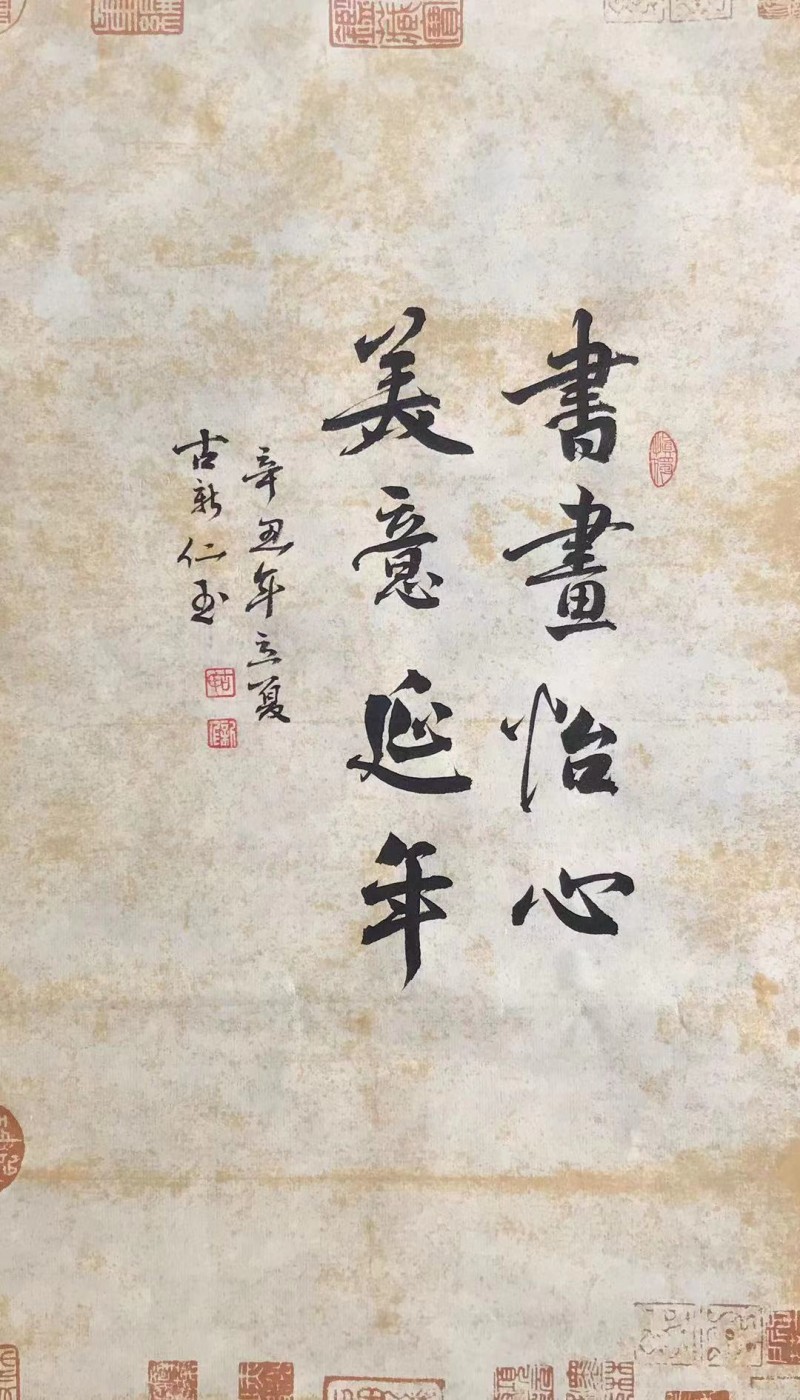 書畫怡心
美意延年
辛丑年立夏
古新仁玉